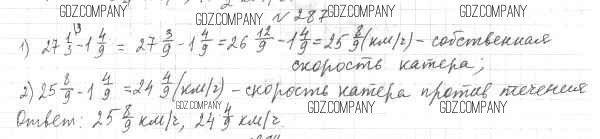 GDZ.COMPANY GDZ.COMPANY GDZ.COMPANY GDZ.COMPANY
№ 287
1) 27 1/3 ^3 - 1 4/9 = 27 3/9 - 1 4/9 = 26 12/9 - 1 4/9 = 25 8/9 (км/ч) - собственная
скорость катера;
GDZ.COMPANY GDZ.COMPANY GDZ.COMPANY GDZ.COMPANY
2) 25 8/9 - 1 4/9 = 24 4/9 (км/ч) - скорость катера против течения
GDZ.COMPANY GDZ.COMPANY GDZ.COMPANY
Ответ: 25 8/9 км/ч, 24 4/9 км/ч.